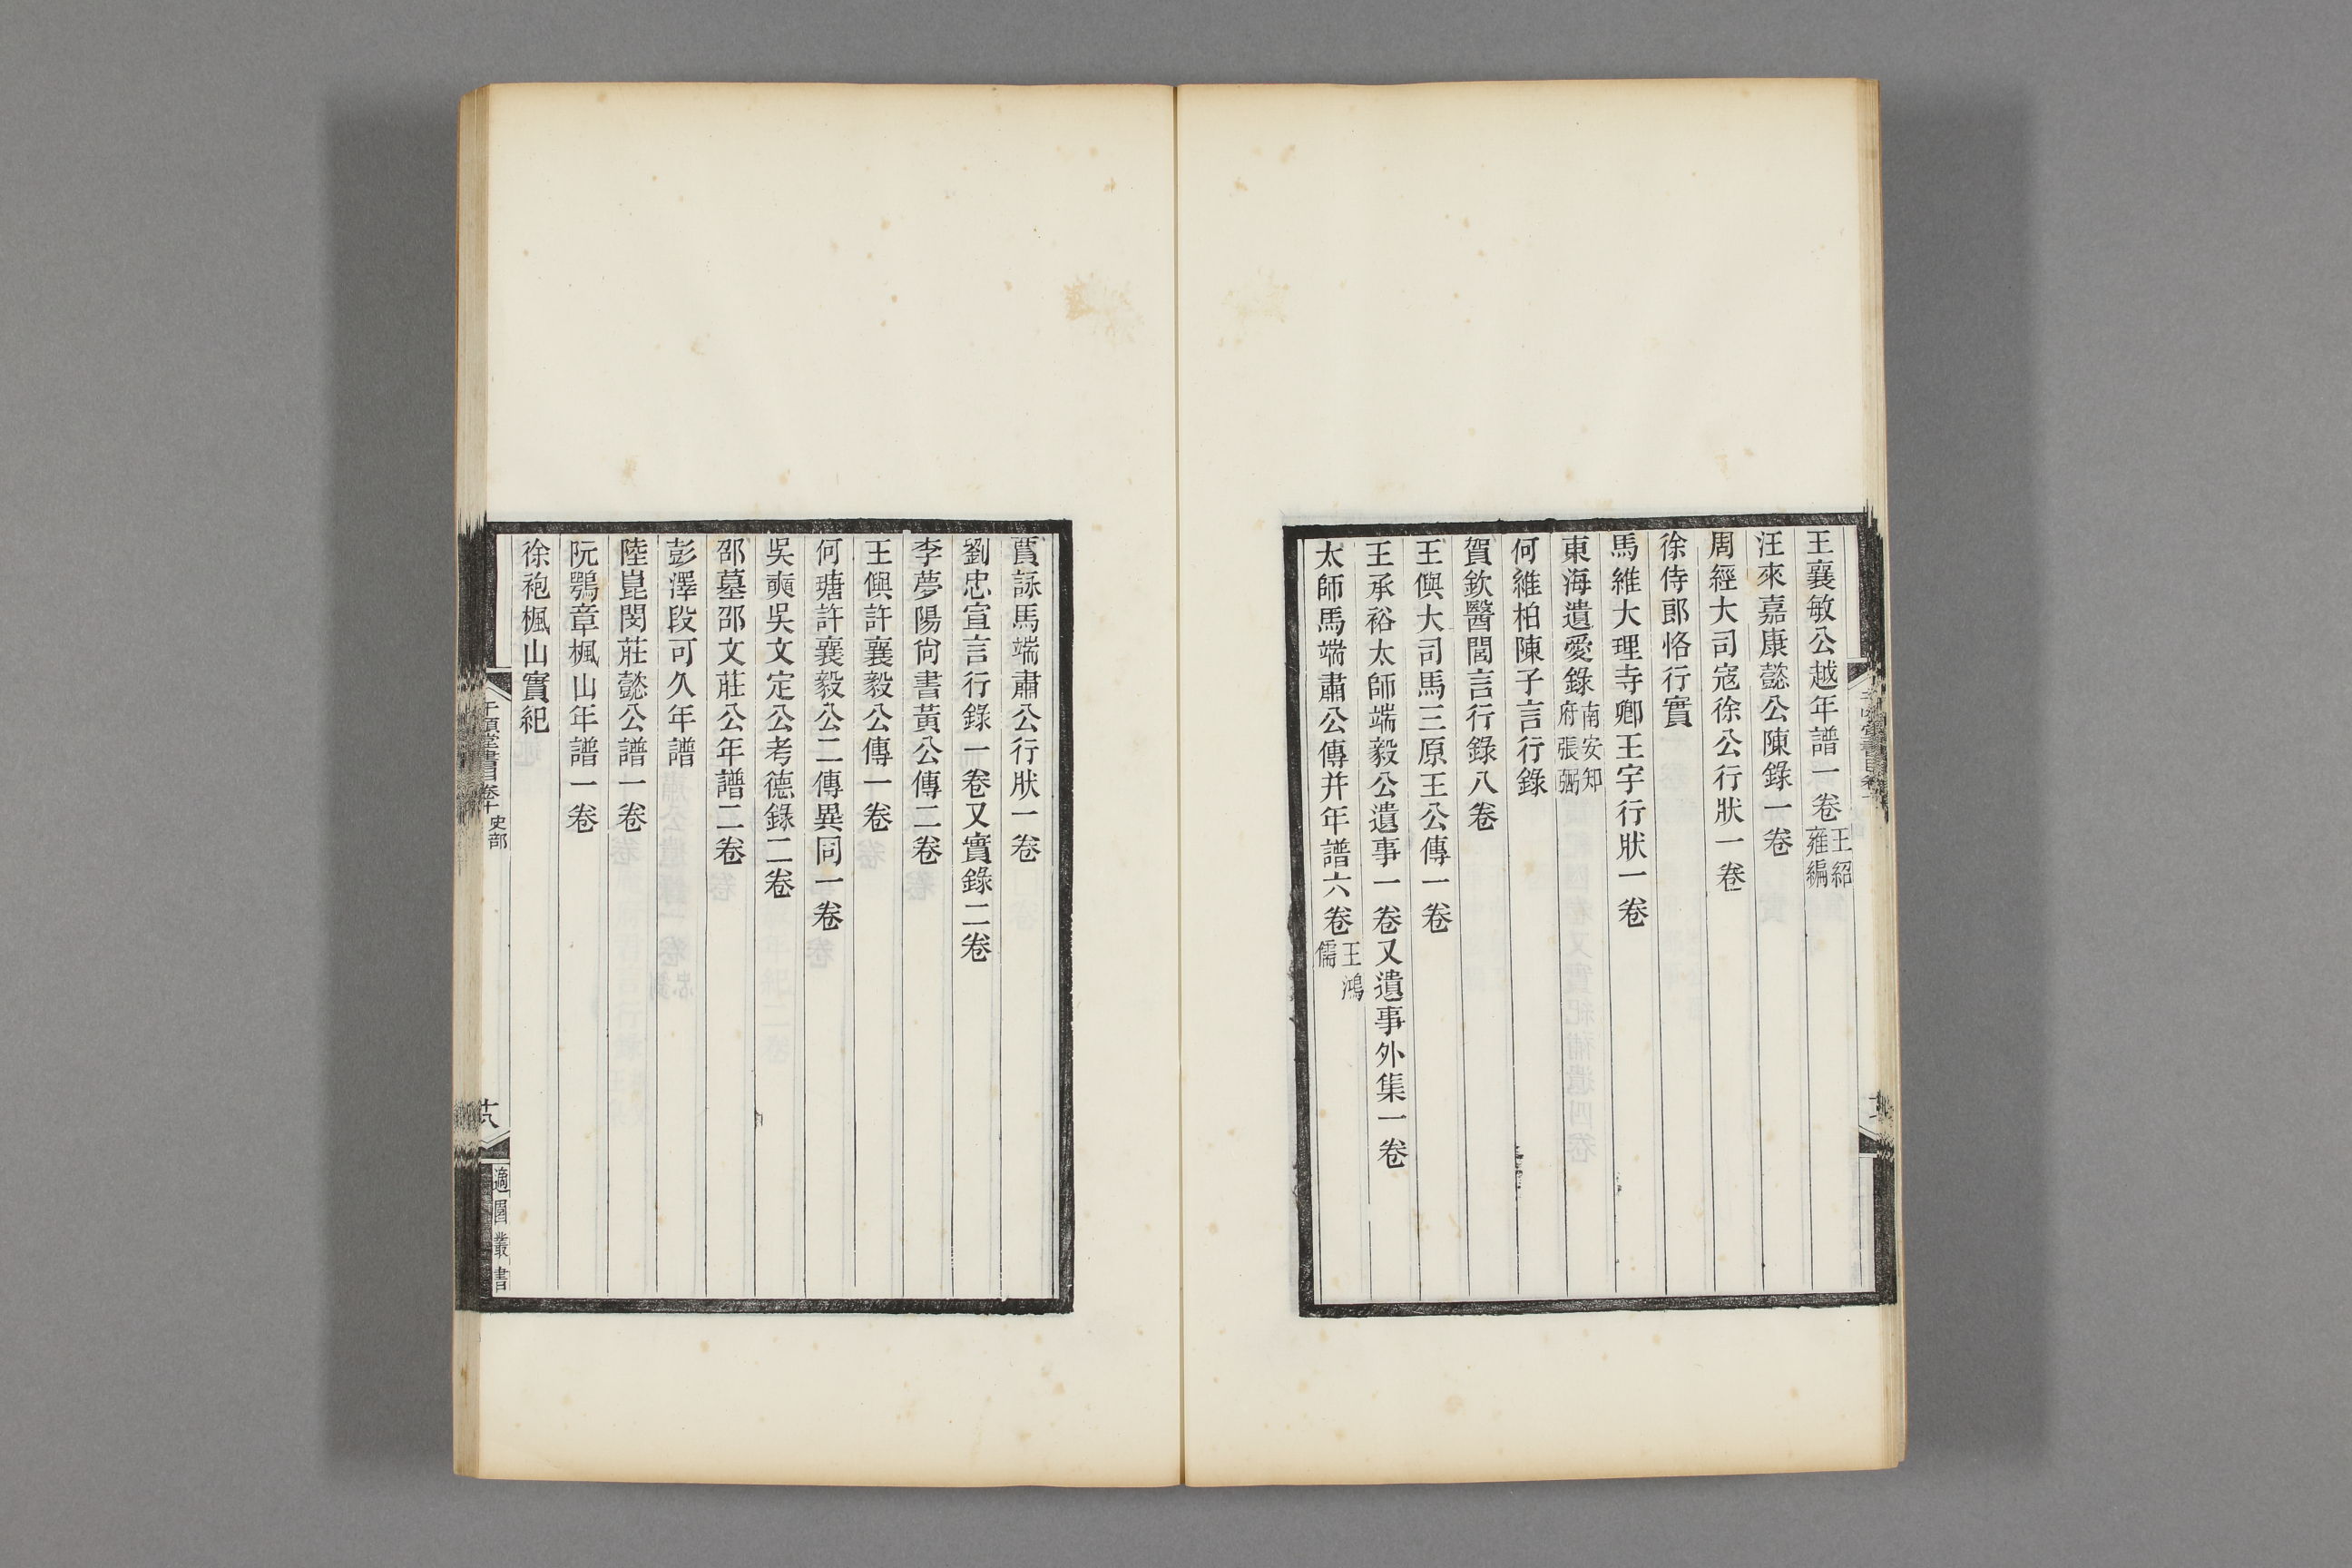 王襄敏公越年譜一卷王紹雍編
汪來嘉康懿公陳錄一卷
周經大司寇徐公行狀一卷
徐侍郎恪行實
馬維大理寺卿王宇行狀一卷
東海遺愛錄南安知府張弼
何維柏陳子言行錄
賀欽醫閭言行錄八卷
王㒜大司馬三原王公傳一卷
王承裕太師端毅公遺事一卷又遺事外集一卷
太師馬端肅公傳并年譜六卷王鴻儒
賈詠馬端肅公行狀一卷
劉忠宣言行錄一卷又實錄二卷
李夢陽尙書黃公傳二卷
王㒜許襄毅公傳一卷
何瑭許襄毅公二傳異同一卷
吳奭吳文定公考德錄二卷
邵墓邵文莊公年譜二卷
彭澤段可久年譜
陸崑閔莊懿公譜一卷
阮鶚章楓山年譜一卷
徐袍楓山實紀
千頃堂書目卷十 史部
十八
適園叢書